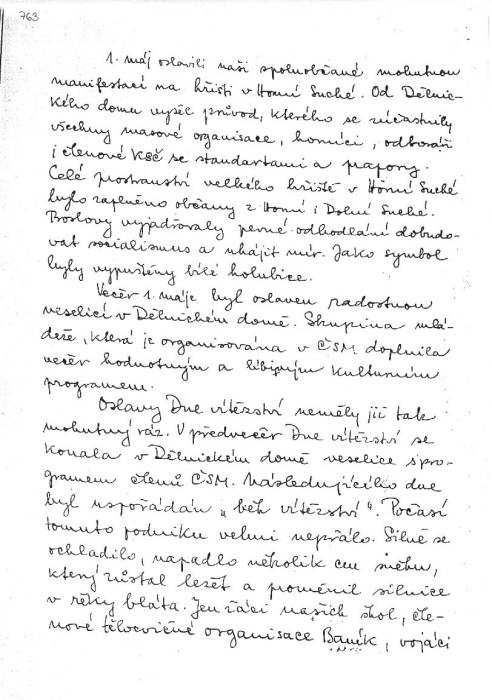 763
1. máj oslavili naši spoluobčané mohutnou
manifestací na hřišti v Horní Suché. Od Dělnic-
kého domu vyšel průvod, kterého se zúčastnily
všechny masové organisace, horníci, odboráři
i členové KSČ se standartami a prapory.
Celé prostranství velkého hřiště v Horní Suché
bylo zaplněno občany z Horní i Dolní Suché.
Proslovy vyjadřovaly pevné odhodlání dobudo-
vat socialismus a uhájit mír. Jako symbol
byly vypuštěny bílé holubice.
Večer 1. máje byl oslaven radostnou
veselicí v Dělnickém domě. Skupina mlá-
deže, která je organisována v ČSM doplnila
večer hodnotným a líbivým kulturním
programem.
Oslavy Dne vítězství neměly již tak
mohutný ráz. V předvečer Dne vítězství se
konala v Dělnickém domě veselice s pro-
gramem členů ČSM. Následujícího dne
byl uspořádán „běh vítězství“. Počasí
tomuto podniku velmi nepřálo. Silně se
ochladilo, napadlo několik cm sněhu,
který zůstal ležet a proměnil silnice
v řeky bláta. Jen žáci našich škol, čle-
nové tělocvičné organisace Baník, vojáci